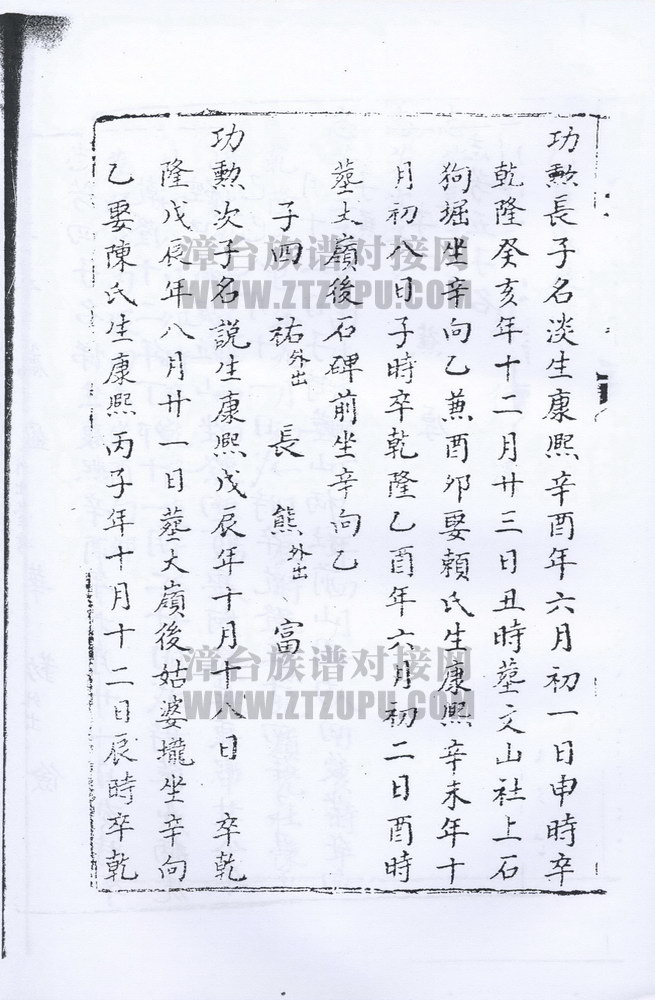 功勲長子名淡生康熙辛酉年六月初一日申時卒
乾隆癸亥年十二月廿三日丑時墓文山社上石
狗掘坐辛向乙兼酉卯娶頼氏生康熙辛未年十
月初八日子時卒乾隆乙酉年六月初二日酉時
墓大嶺後石碑前坐辛向乙
子四 祐外出 長 熊外出 富
功勲次子名説生康熙戊辰年十月十八日 卒乾
隆戊辰年八月廿一日墓大嶺後姑婆壠坐辛向
乙娶陳氏生康熙丙子年十月十二日辰時卒乾
漳台族谱对接网
WWW.ZTZUPU.COM
漳台族谱对接网
WWW.ZTZUPU.COM